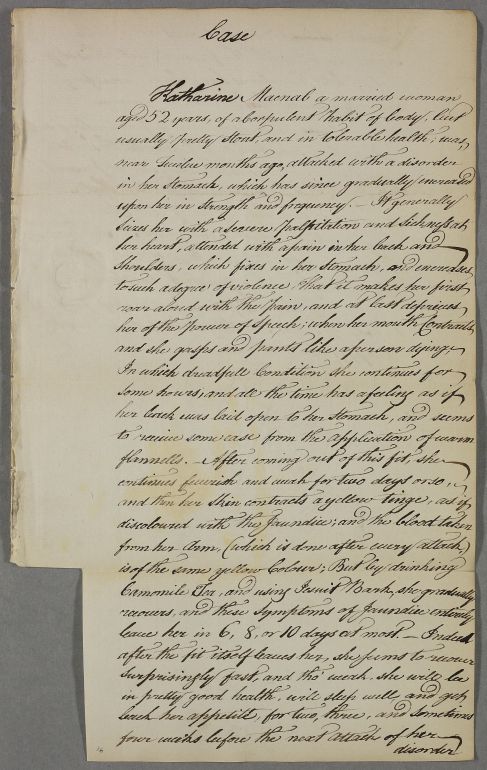 Case
Katharine Macnab a married woman
aged 52 years, of a Corpulent habit of body, but
usually pretty stout, and in tolerable health; was,
near twelve months ago, attacked with a disorder
in her Stomach, which has since gradually encreased
upon her in strength and frequency. — It generally
seizes her with a severe palpitation and Sickness at
her heart, attended with a pain in her back and
Shoulders, which fixes in her Stomach, and encreases
to such a degree of violence, that it makes her first
roar aloud with the Pain, and at last deprives
her of the power of Speech; when her mouth Contracts
and she gasps and pants like a person dying;
In which dreadfull Condition she continues for
some hours, and all the time has a feeling as if
her back was laid open to her Stomach, and seems
to receive some ease from the application of warm
flannells. — After coming out of this fit, she
continues feverish and weak for two days or so,
and then her Skin contracts a yellow tinge, as if
discoloured with the Jaundice; and the blood taken
from her Arm, (which is done after every attack)
is of the same yellow Colour; But by drinking
Camomile Tea, and using Jesuit Bark, she gradually
recovers, and these Symptoms of Jaundice entirely
leave her in 6, 8, or 10 days at most. — Indeed
after the fit itself leaves her, she seems to recover
Surprisingly fast, and tho' weak, she will be
in pretty good health, will sleep well and get
back her appetite, for two, three, and sometimes
four weeks before the next attack of her
disorder